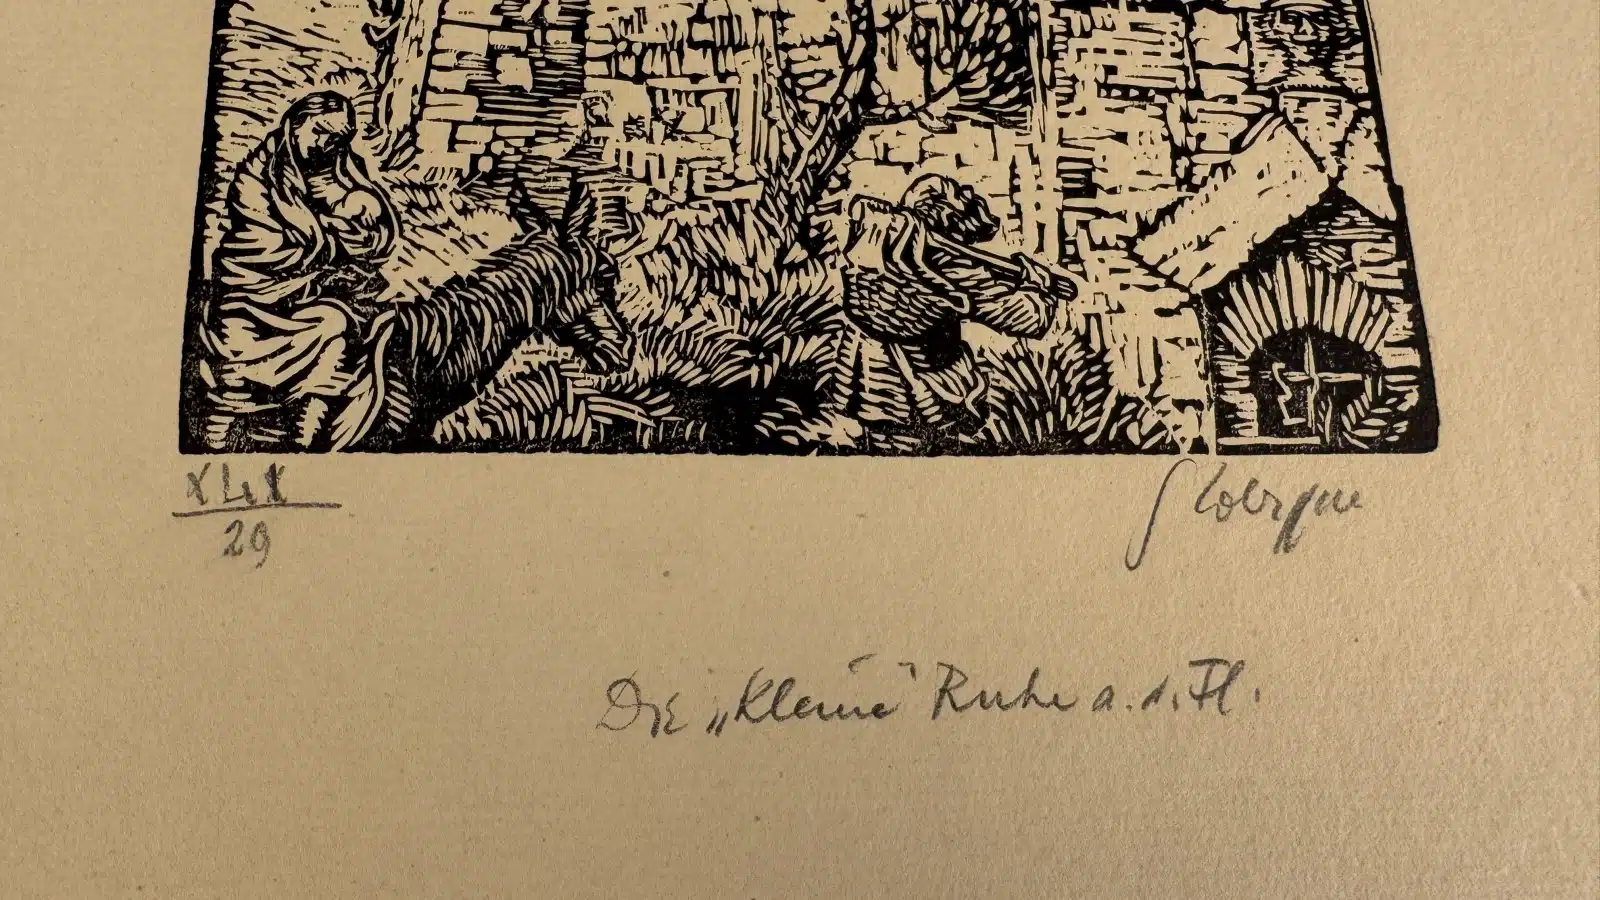 XLIX
29
Die „Kleine" Ruhe a. d. Fl.